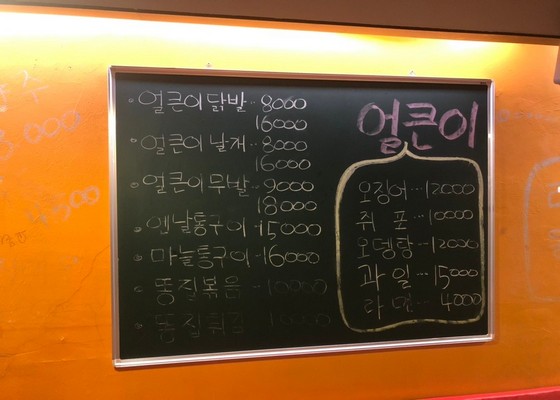 얼큰이 닭발 ·· 8000
16000
얼큰이 날개 ·· 8000
16000
얼큰이 무발 ·· 9000
18000
옌날통구이 ·· 15000
마늘통구이 ·· 16000
똥집볶음 ·· 10000
똥집튀김 ·· 10000
얼큰이
오징어 ·· 12000
쥐 포 ··· 10000
오뎅탕 ·· 12000
과 일 ··· 15000
라 면 ··· 4000